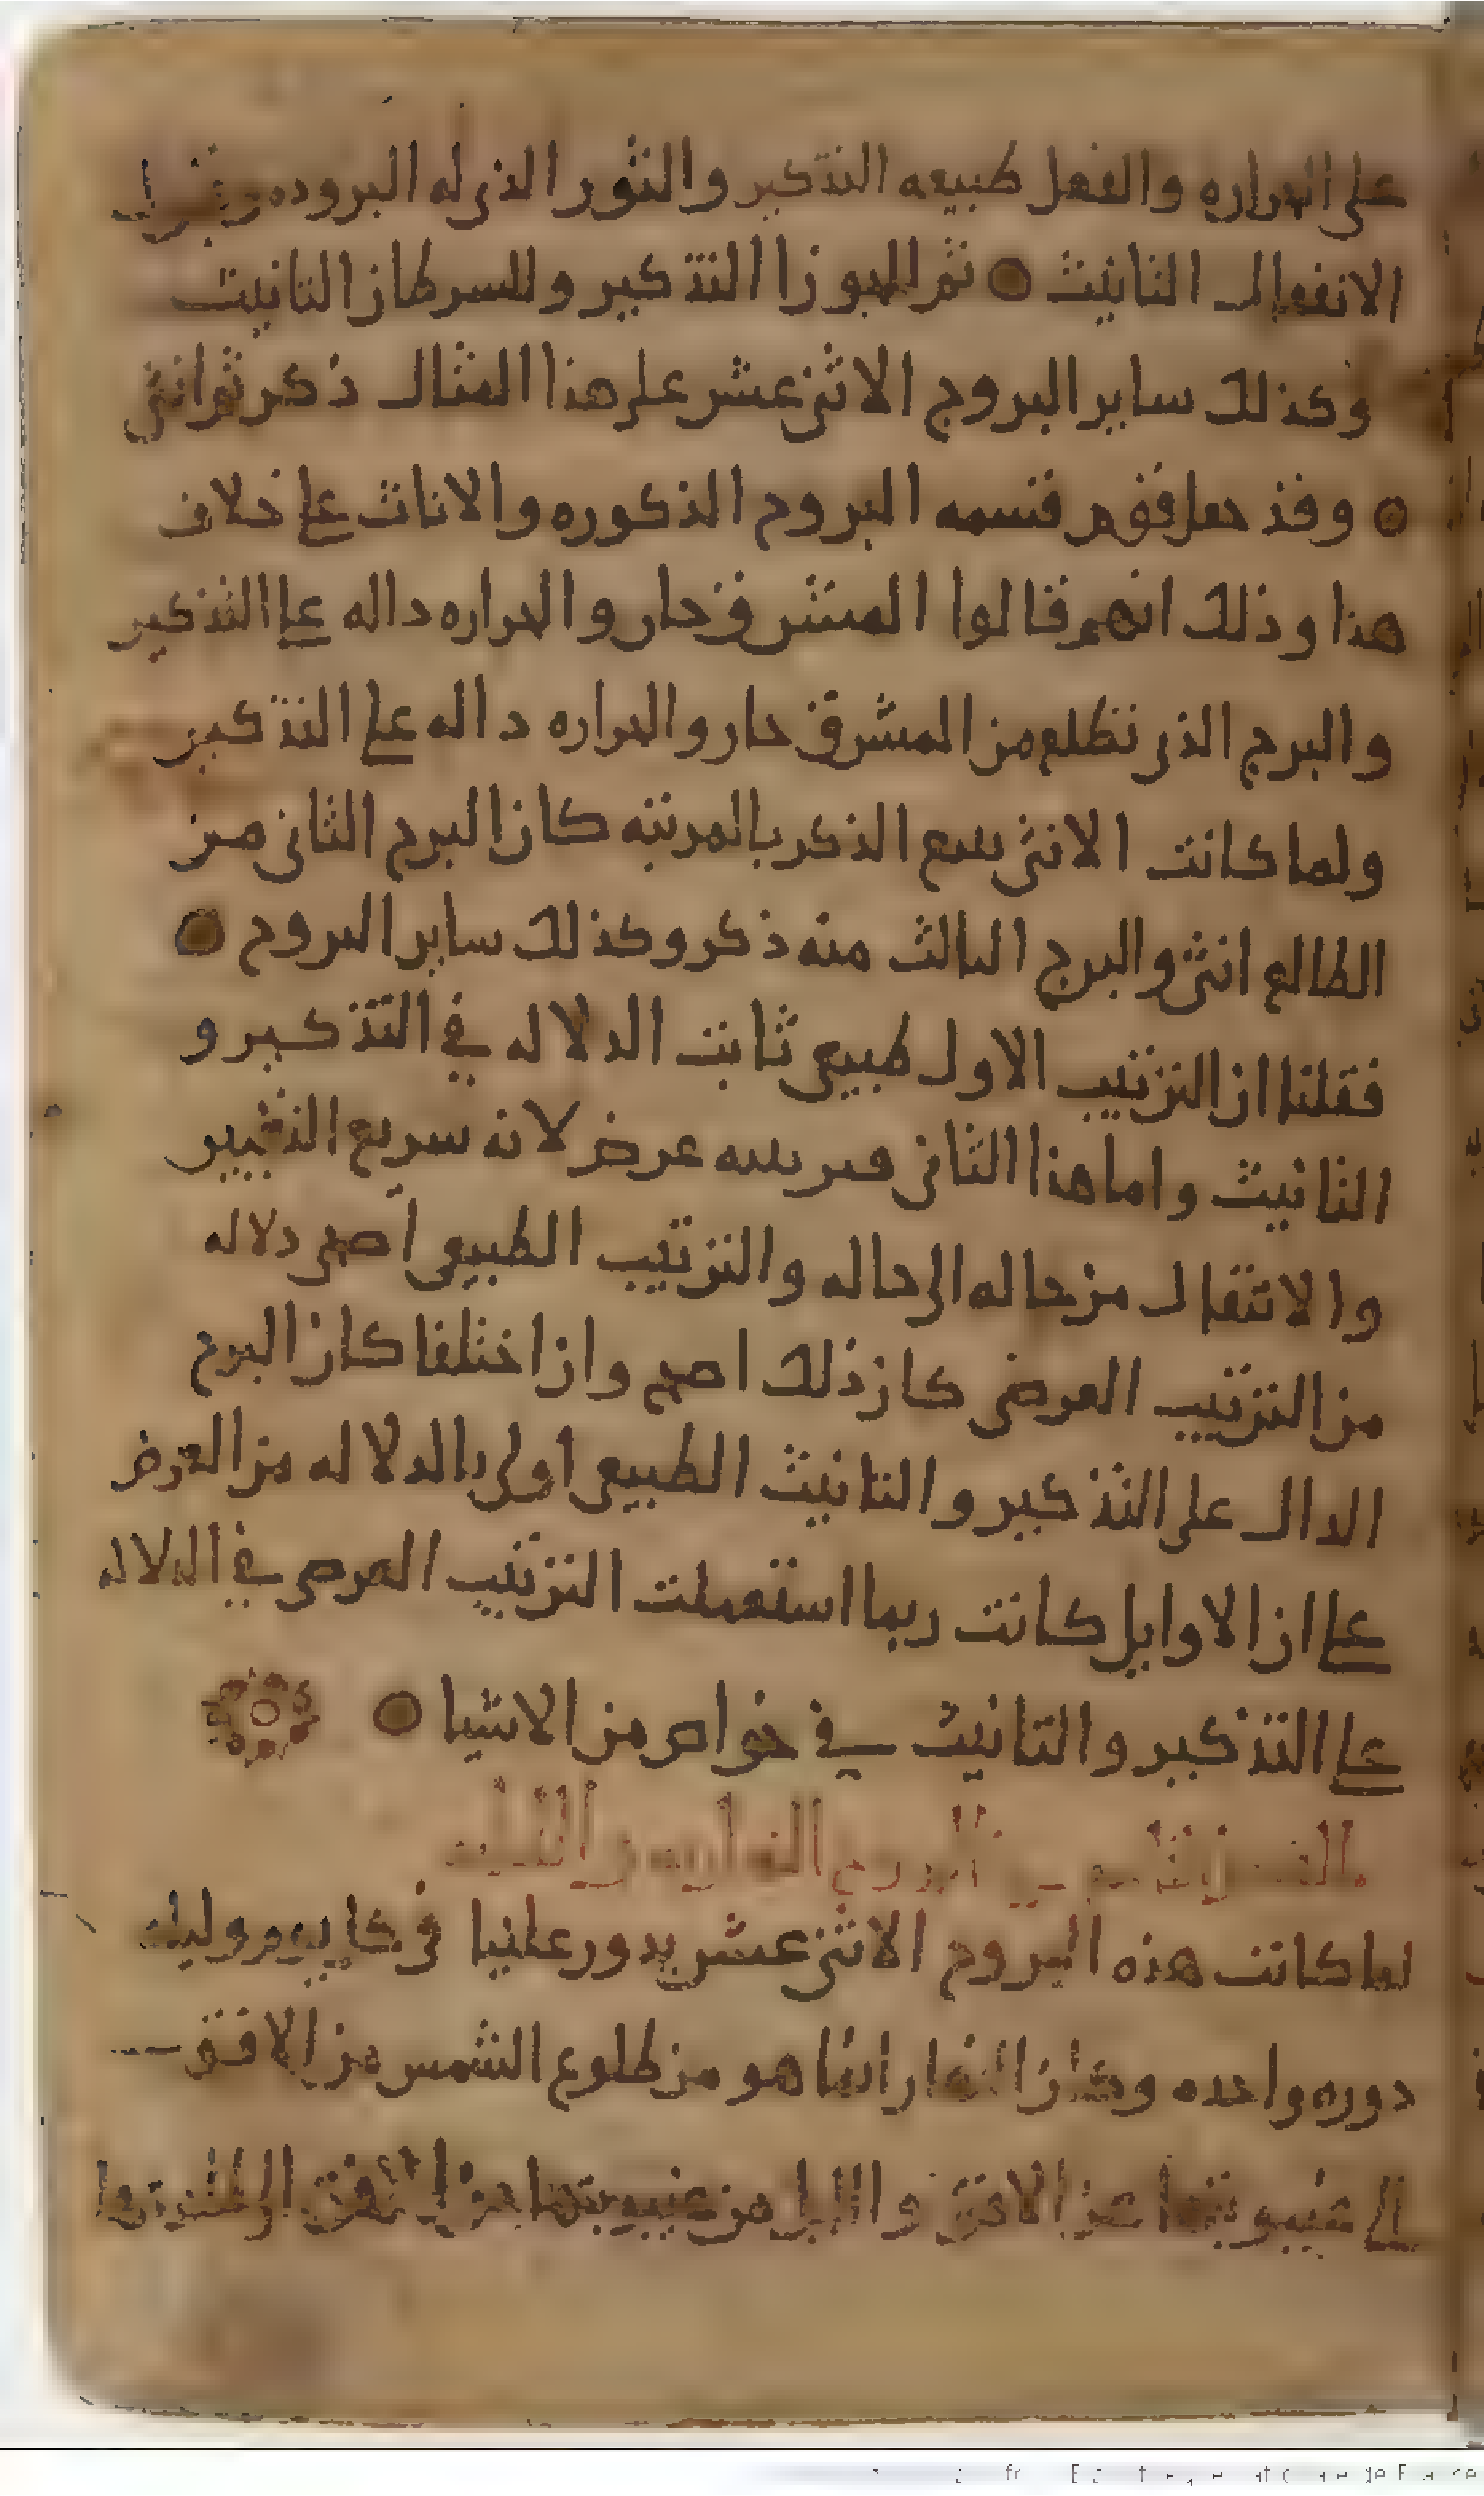 على الحراره والفعل طبيعه التذكير والثور الذى له البروده
الانفعال التانيث ثم للجوزا التذكير وللسرطان التانيث
وكذلك ساير البروج الاثنى عشر على هذا المثال ذكر ثم انثى
وقد جعل قوم قسمه البروج الذكوره والاناث على خلاف
هذا وذلك انهم قالوا المشرق حار والحراره داله على التذكير
والبرج الذى يطلع من المشرق حار والحراره داله على التذكير
ولما كانت الانثى تتبع الذكر بالمرتبه كان البرج الثانى من
الطالع انثى والبرج الثالث منه ذكر وكذلك ساير البروج
فقلنا ان الترتيب الاول طبيعى ثابت الدلاله في التذكير و
التانيث واما هذا الثانى عرض لانه سريع التغيير
والانتقال من حاله الى حاله والترتيب الطبيعى اصح دلاله
من الترتيب العرضى كان ذلك اصح وان اختلفا كان البرج
الدال على التذكير والتانيث الطبيعى اولى بالدلاله من العرضى
على ان الاوايل كانت ربما استعملت الترتيب العرضى في الدلاله
على التذكير والتانيث في خواص من الاشيا
البروج النهاريه والليليه
لما كانت هذه البروج الاثنى عشر يدور علينا فى كل يوم وليله
دوره واحده وكان النهار انما هو من طلوع الشمس من الافق
الى غيبوبتها عن الافق والليل من غيبوبتها عن الافق الى